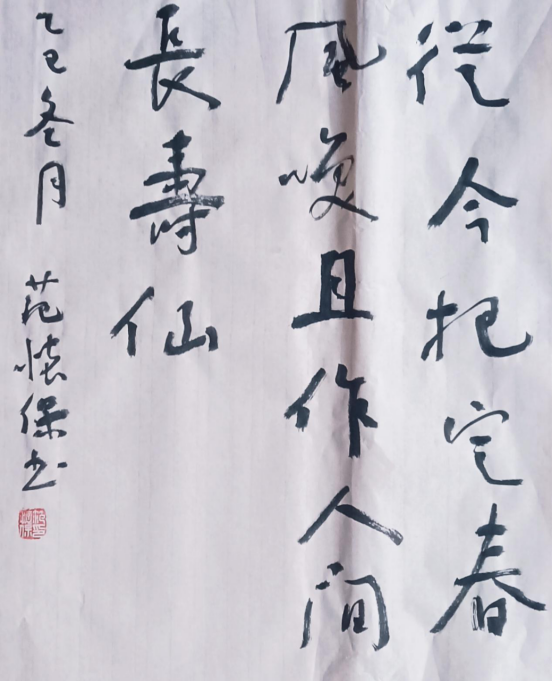 從今把定春
風咲且作人间
長壽仙
乙巳冬月 范懷保书